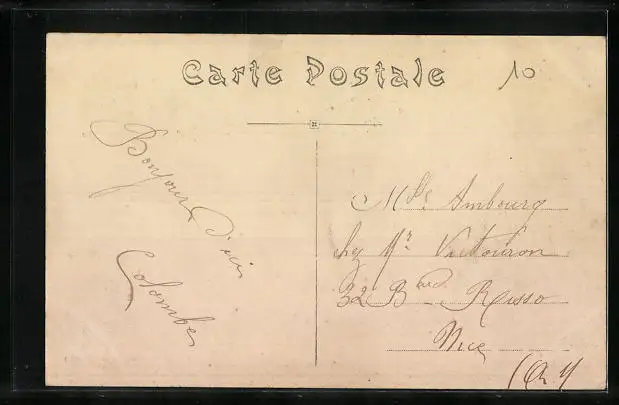 Carte Postale
10
Bonjour d'ici
Colombe
Mlle Ambourg
chez Mr Victouron
32 Bard Risso
Nice
(A M)